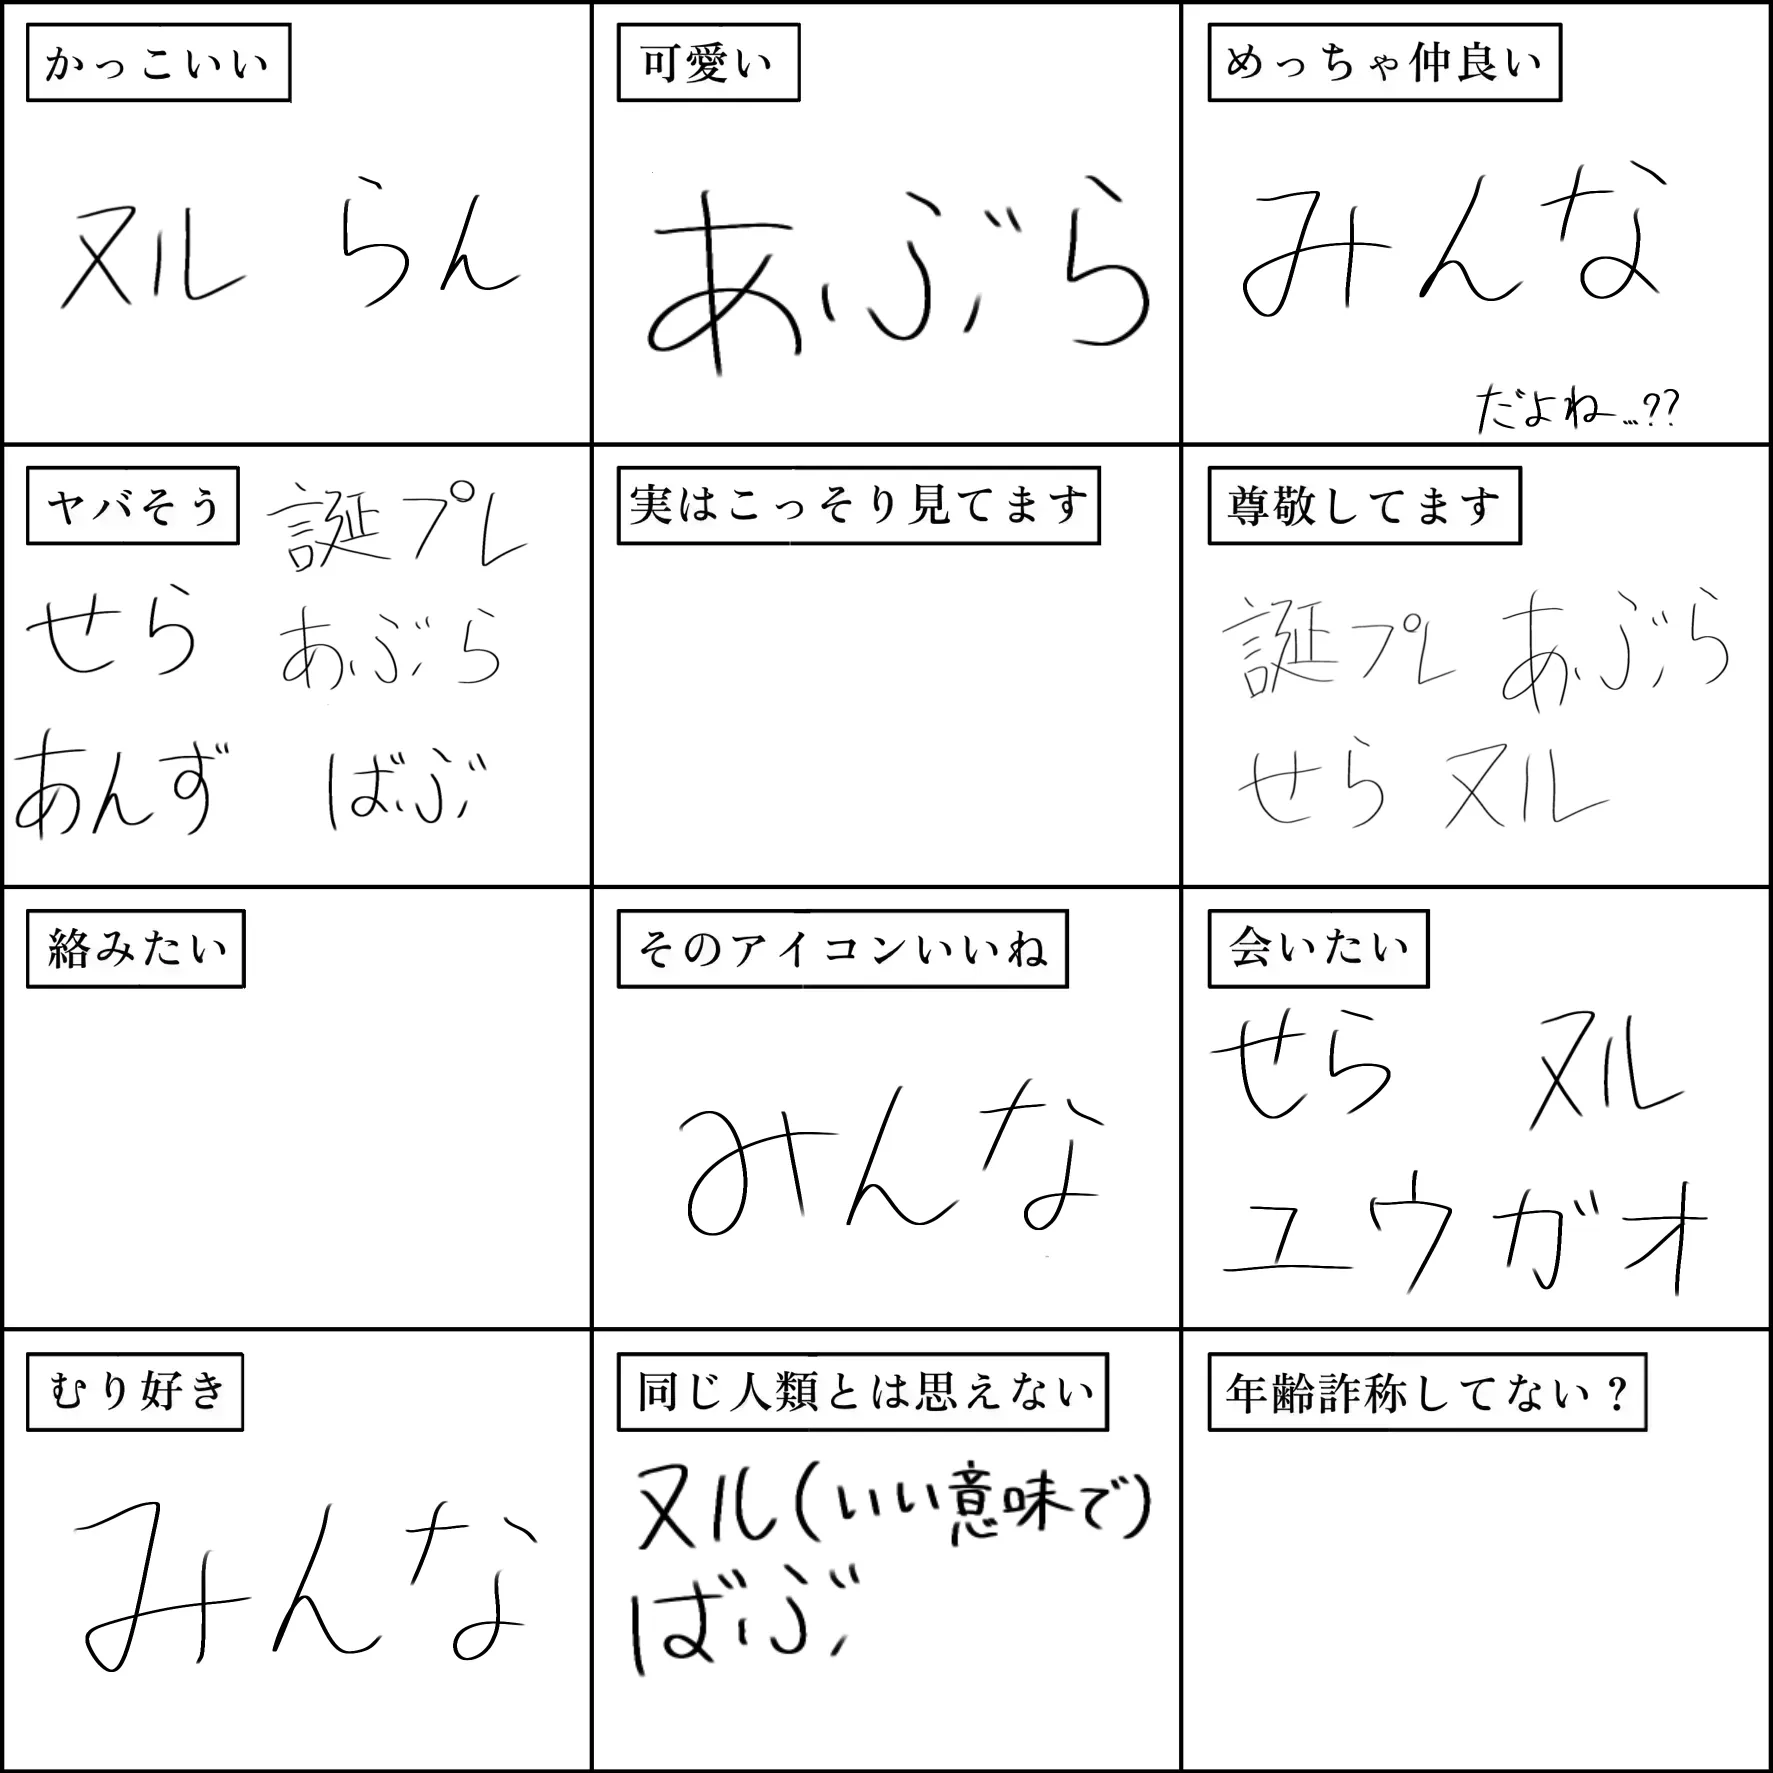 かっこいい
ヌル らん
可愛い
あぶら
めっちゃ仲良い
みんな
だよね…??
ヤバそう
誕プレ
せら
あぶら
あんず ばぶ
実はこっそり見てます
尊敬してます
誕プレ あぶら
せら ヌル
絡みたい
そのアイコンいいね
みんな
会いたい
せら ヌル
ユウガオ
むり好き
みんな
同じ人類とは思えない
ヌル(いい意味で)
ばぶ
年齢詐称してない？